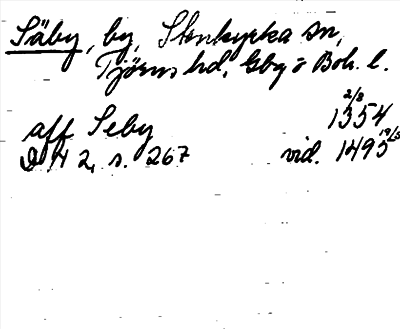 Säby, by, Stenkyrka sn,
Tjörns hd, Gbg o Boh. l.
2/8
aff Seby 1354
19/5
DN 2, s. 267 vid. 1495